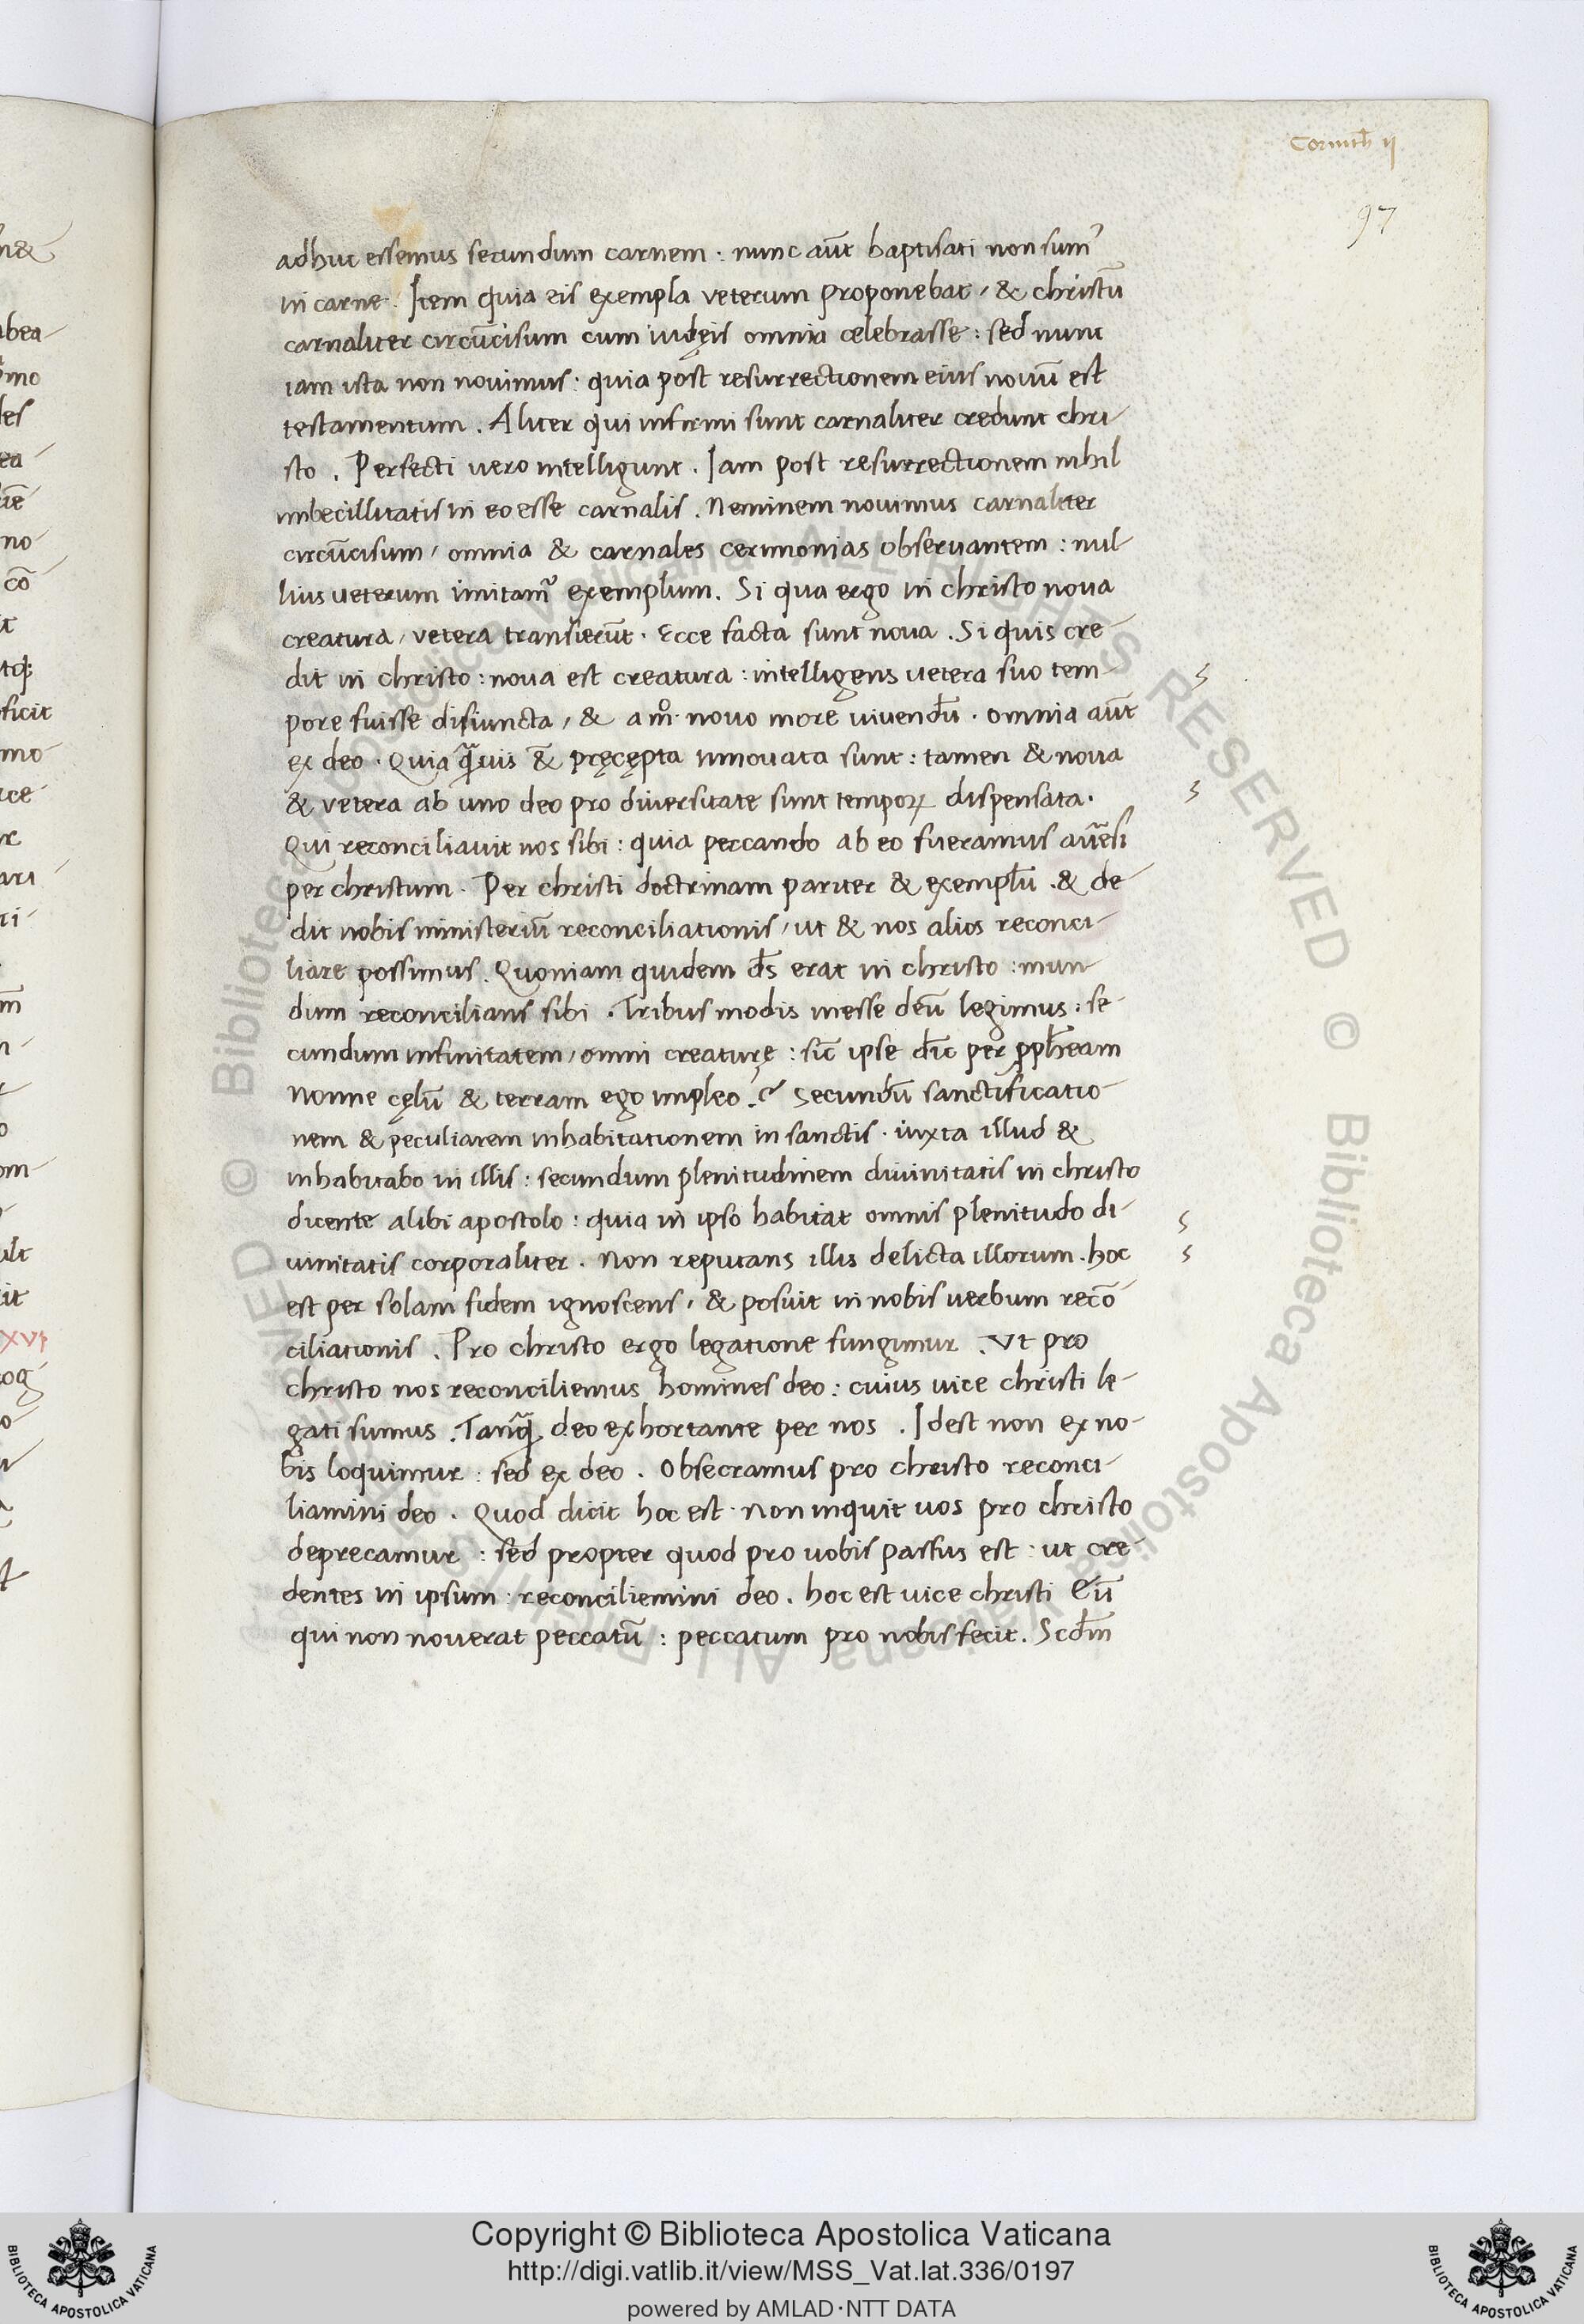 Corinth̄ ij
97
adhuc essemus secundum carnem : nunc aūt baptisati non sumꝰ
in carne . Item quia eis exempla veterum proponebat / & christū
carnaliter circūcisum cum iudęis omnia celebrasse : sed nunc
iam ista non nouimus : quia post resurrectionem eius nouū est
testamentum . Aliter qui infirmi sunt carnaliter credunt chri-
sto . Perfecti uero intelligunt . Iam post resurrectionem nihil
imbecillitatis in eo esse carnalis . Neminem nouimus carnaliter
circūcisum / omnia & carnales cerimonias obseruantem : nul-
lius ueterum imitamꝰ exemplum . Si qua ergo in christo noua
creatura / vetera transierūt . Ecce facta sunt noua . Si quis cre-
dit in christo : noua est creatura : intelligens uetera suo tem-
pore fuisse disiuncta / & am̊ nouo more uiuendū . omnia aūt
ex deo . Quia q̃uis & pręcępta innouata sunt : tamen & noua
& vetera ab uno deo pro diuersitate sunt temporꝝ dispensata .
Qui reconciliauit nos sibi : quia peccando ab eo fueramus au̾esi
per christum . Per christi doctrinam pariter & exemplū . & de-
dit nobis ministeriū reconciliationis / ut & nos alios reconci-
liare possimus . Quoniam quidem d̄s erat in christo : mun-
dum reconcilians sibi . Tribus modis inesse deū legimus : se-
cundum infinitatem / omni creaturę : sic̄ ipse dīc per ꝓph̄eam
Nonne cęlū & terram ego impleo .? Secundū sanctificatio-
nem & peculiarem inhabitationem in sanctis . iuxta illud &
inhabitabo in illis : secundum plenitudinem diuinitatis in christo
dicente alibi apostolo : quia in ipso habitat omnis plenitudo di-
uinitatis corporaliter . Non reputans illis delicta illorum . hoc
est per solam fidem ignoscens / & posuit in nobis uerbum recō
ciliationis . Pro christo ergo legatione fungimur . Vt pro
christo nos reconciliemus homines deo : cuius uice christi le-
gati sumus . Tanq̃ deo exhortante per nos . Idest non ex no-
bis loquimur : sed ex deo . Obsecramus pro christo reconci-
liamini deo . Quod dicit hoc est . Non inquit uos pro christo
deprecamur : sed propter quod pro uobis passus est : ut cre-
dentes in ipsum : reconciliemini deo . hoc est uice christi Eū
qui non nouerat peccatū : peccatum pro nobis fecit . Scd̄m
Copyright © Biblioteca Apostolica Vaticana
http://digi.vatlib.it/view/MSS_Vat.lat.336/0197
powered by AMLAD·NTT DATA